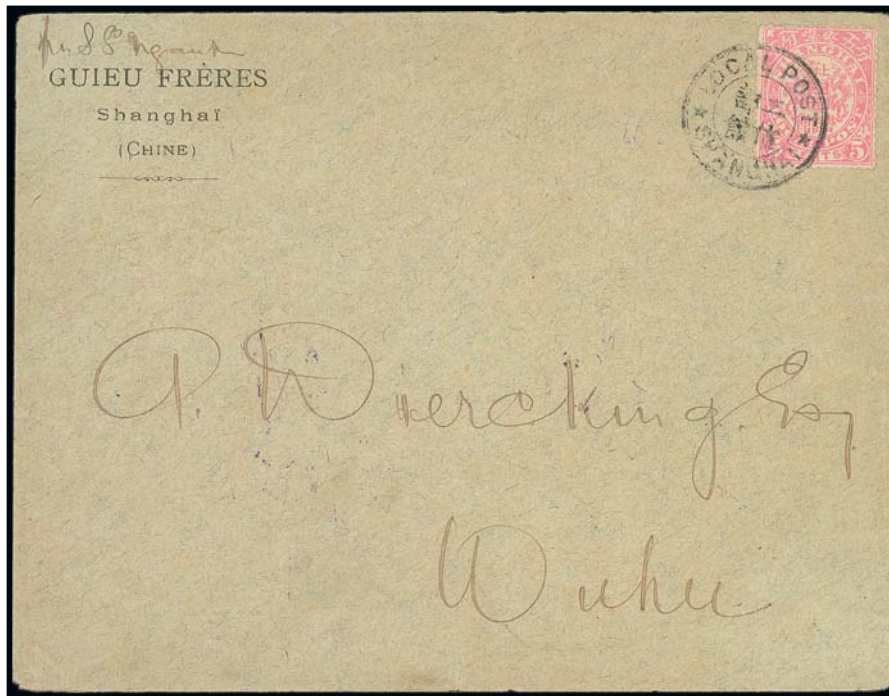 per S. S. Ngankin
GUIEU FRÈRES
Shanghaï
(CHINE)
LOCAL POST
SHANGHAI
5
P. Duercking. Esq
Wuhu